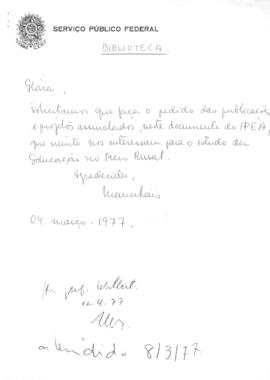 SERVIÇO PÚBLICO FEDERAL
BIBLIOTECA
Glória,
Solicitamos que faça o pedido das publicações
e projetos assinalados, neste documento do IPEA,
que muito nos interessam para o estudo da
Educação no Meio Rural.
Agradecidos,
04. março - 1977.
prof. Willert.
77
atendido 8/3/77